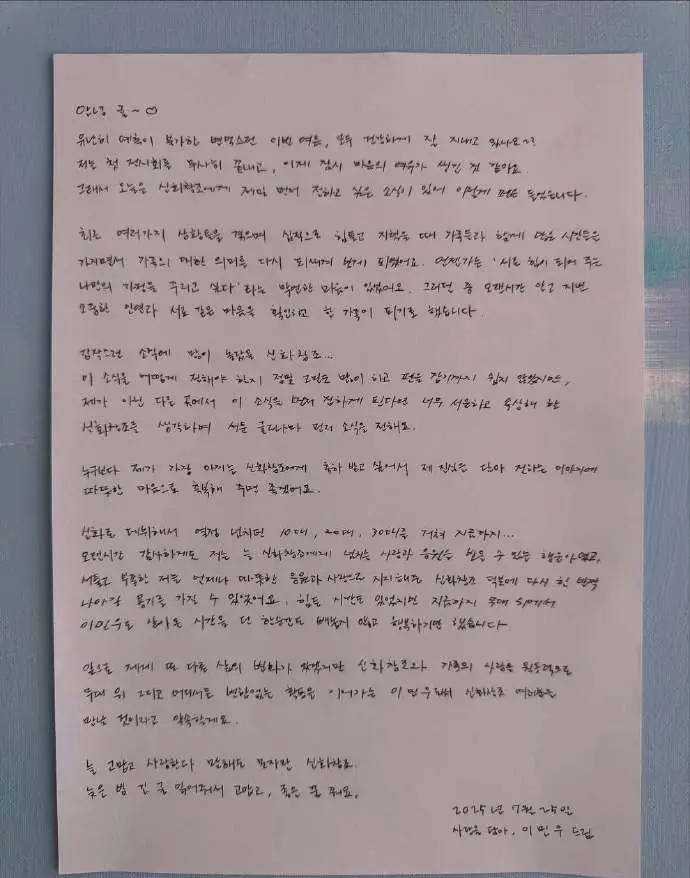 안녕 귤~♡
유난히 여름이 불가한 변덕스런 이번 여름, 모두 건강하게 잘 지내고 있나요~?
저는 첫 전시회를 무사히 끝내고, 이제 잠시 마음의 여유가 생긴 것 같아요.
그래서 오늘은 신화창조에게 제일 먼저 전하고 싶은 소식이 있어 이렇게 펜을 들었습니다.
최근 여러가지 상황들을 겪으며 심적으로 힘들고 지쳤을 때 가족들과 함께 많은 시간들을
가지면서 가족의 대한 의미를 다시 되새기게 되었어요. 언젠가는 '서로 힘이 되어 주는
나만의 가정을 꾸리고 싶다'라는 막연한 마음이 있었어요. 그러던 중 오랜시간 알고 지낸
소중한 인연과 서로 같은 마음을 확인하고 한 가족이 되기로 했습니다.
갑작스런 소식에 많이 놀랐을 신화창조...
이 소식을 어떻게 전해야 하지 정말 고민도 많이 하고 펜을 잡기까지 쉽지 않았지만,
제가 아닌 다른 곳에서 이 소식을 먼저 접하게 된다면 너무 서운하고 속상해 할
신화창조를 생각하며 서툰 글이나마 먼저 소식을 전해요.
누구보다 제가 가장 아끼는 신화창조에게 축하 받고 싶어서 제 진심을 담아 전하는 이야기에
따뜻한 마음으로 축복해 주면 좋겠어요.
신화로 데뷔해서 열정 넘치던 10대, 20대, 30대를 거쳐 지금까지...
오랜시간 감사하게도 저는 늘 신화창조에게 넘치는 사랑과 응원을 받을 수 있는 행운아였고,
서툴고 부족한 저를 언제나 따뜻한 응원과 사랑으로 지지해주는 신화창조 덕분에 다시 한 번 더
나아갈 용기를 가질 수 있었어요. 힘든 시간도 있었지만 지금까지 무대 위에서
이민우로 살아온 시간을 단 한순간도 빼놓지 않고 행복하기만 했습니다.
앞으로 제게 또 다른 삶의 변화가 있겠지만 신화창조와 가족의 사랑을 원동력으로
무대 위 그리고 어디서든 변함없는 활동을 이어가는 이민우로서 신화창조 여러분을
만날 것이라고 약속할게요.
늘 고맙고 사랑한다 말해도 모자란 신화창조.
늦은 밤 긴 글 읽어줘서 고맙고, 좋은 꿈 꿔요.
2025년 7월 25일
사랑을 담아, 이민우 드림